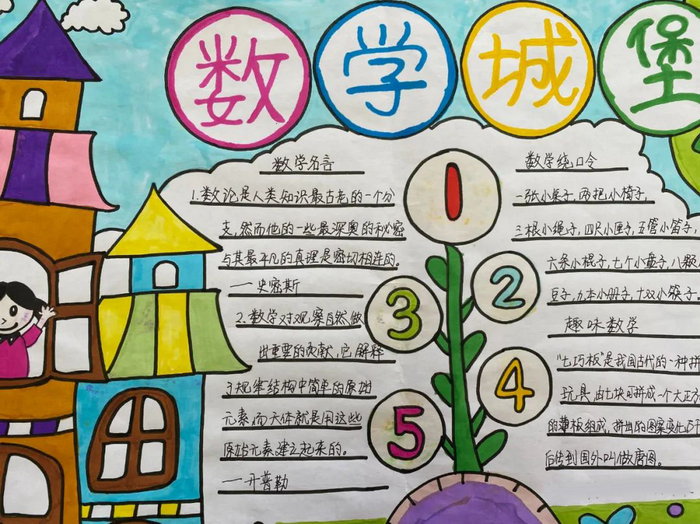 数学城堡
数学名言
1.数论是人类知识最古老的一个分
支,然而他的一些最深奥的秘密
与其最平凡的真理是密切相连的。
——史密斯
2.数学对观察自然做
出重要的贡献,它解释
了规律结构中简单的原始
元素,而天体就是用这些
原始元素建立起来的。
——开普勒
1
2
3
4
5
数学绕口令
一张小桌子,两把小椅子,
三根小绳子,四只小匣子,五管小笛子,
六条小棍子,七个小盘子,八
豆子,九本小册子,十双小筷子
趣味数学
"七巧板"是我国古代的一种拼
玩具,由七块可拼成一个大正方
的薄板组成,拼出的图案变化万千
后传到国外叫做唐图。